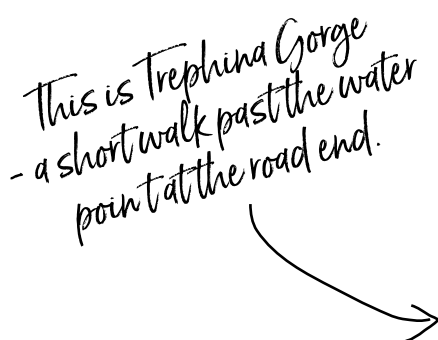 This is Trephina Gorge
- a short walk past the water
point at the road end.